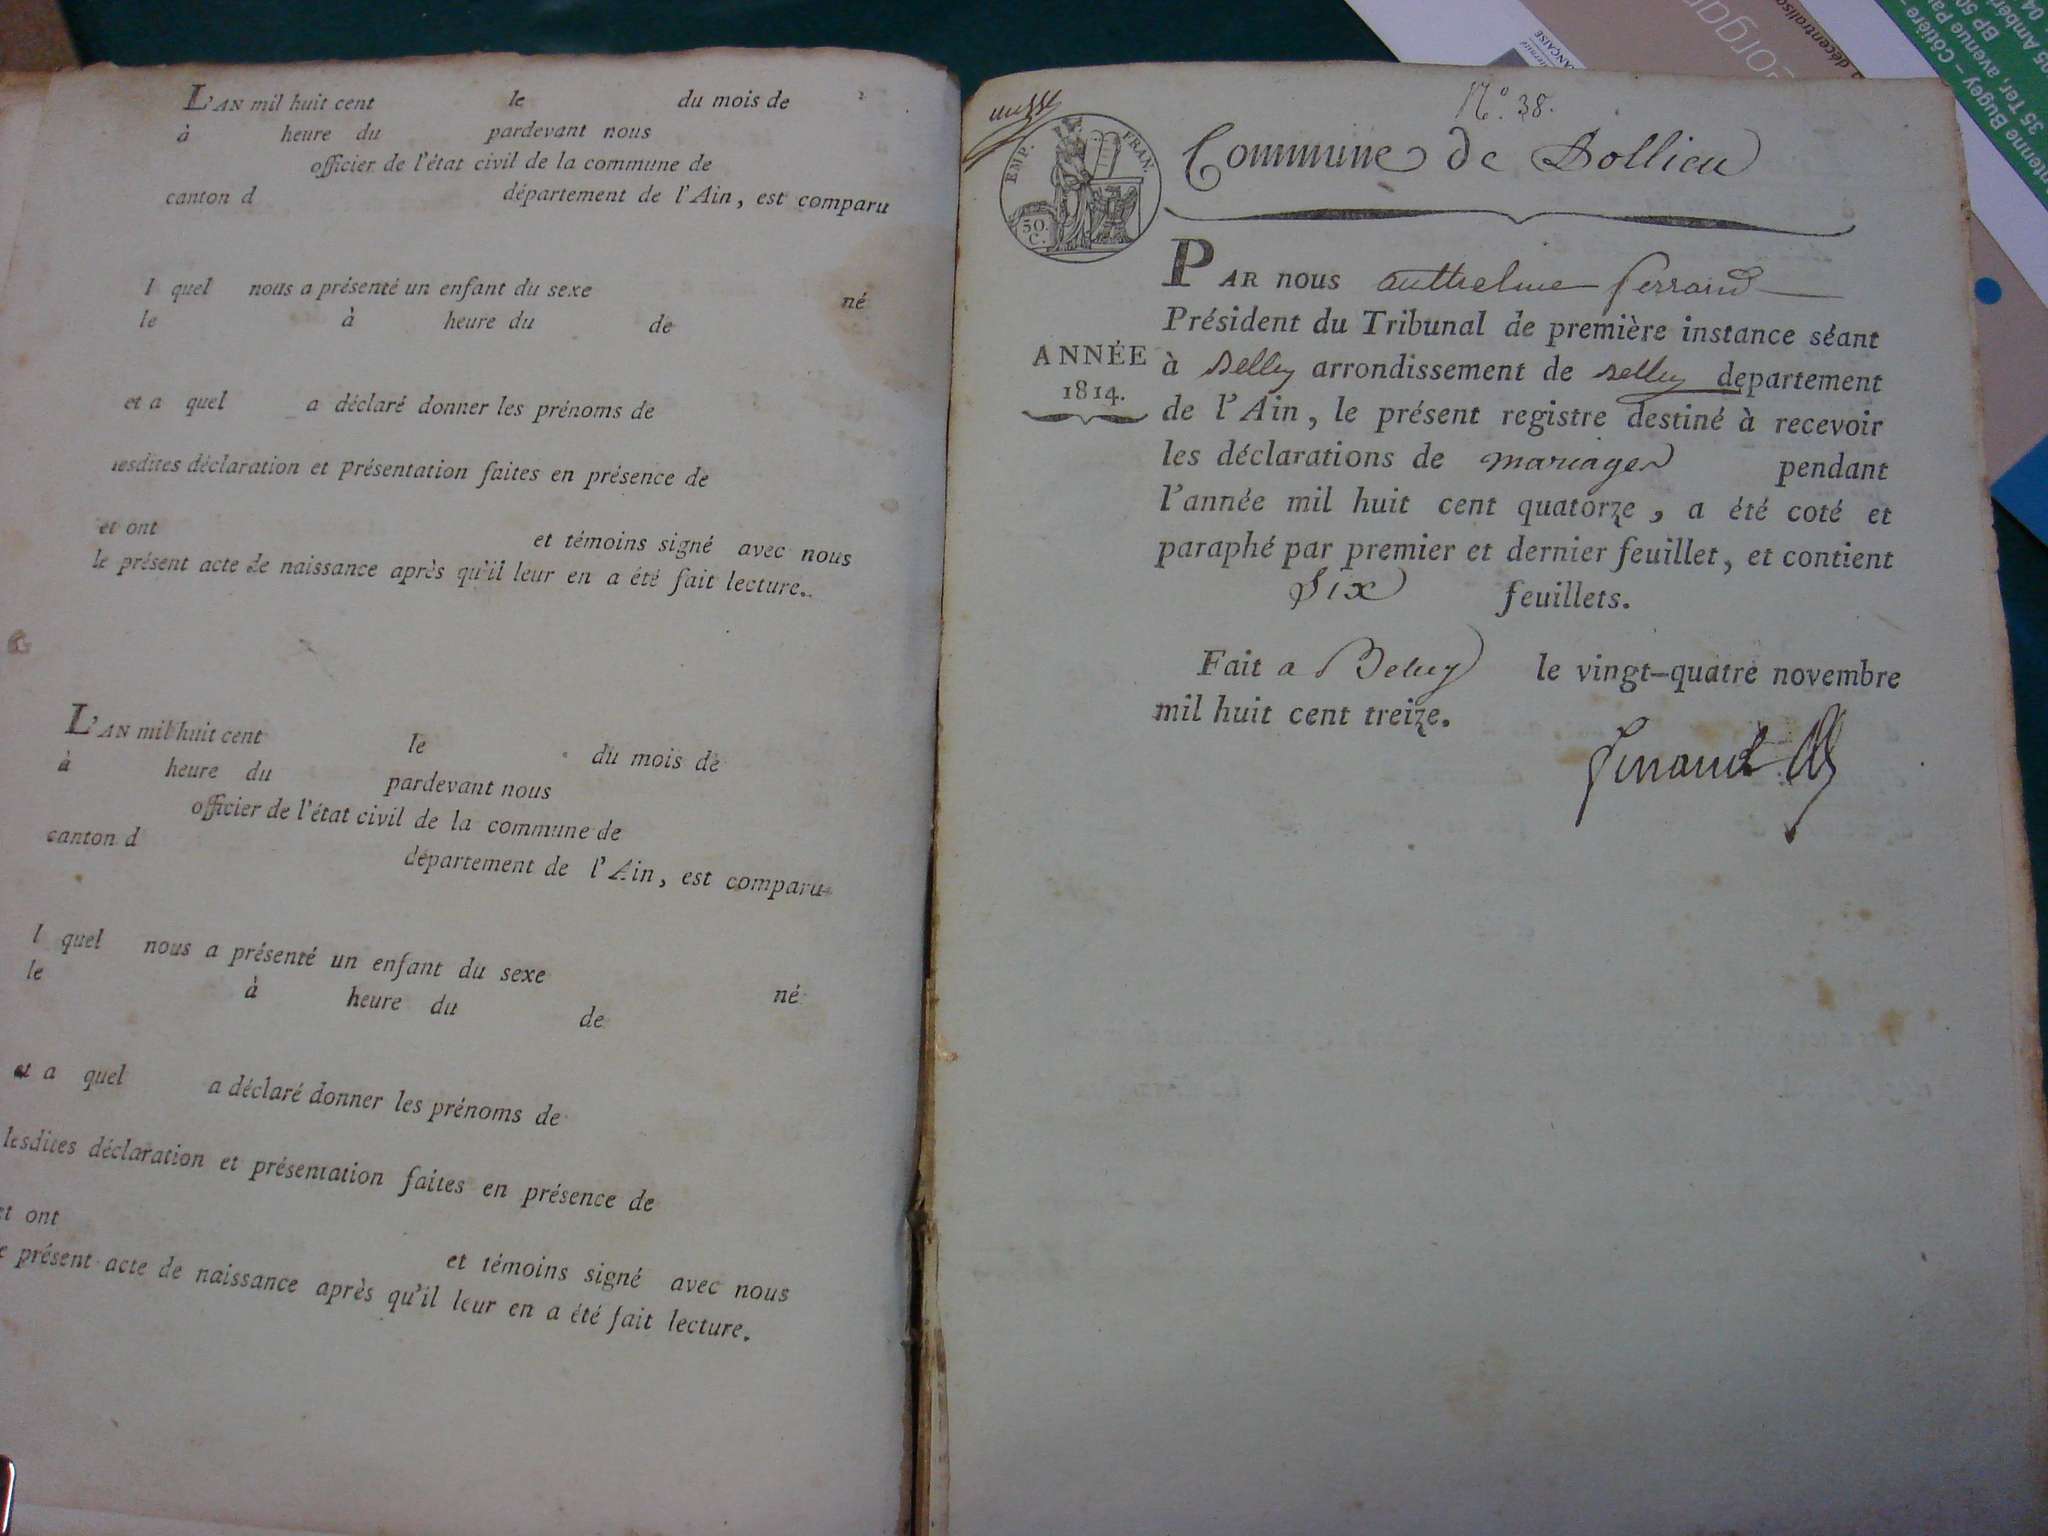 L'AN mil huit cent le du mois de
à heure du pardevant nous
officier de l'état civil de la commune de
canton d département de l'Ain, est comparu
l quel nous a présenté un enfant du sexe né
le à heure du de
et a quel a déclaré donner les prénoms de
lesdites déclaration et présentation faites en présence de
et ont et témoins signé avec nous
le présent acte de naissance après qu'il leur en a été fait lecture.
L'AN mil huit cent le du mois de
à heure du pardevant nous
officier de l'état civil de la commune de
canton d département de l'Ain, est comparu
l quel nous a présenté un enfant du sexe né
le à heure du de
et a quel a déclaré donner les prénoms de
lesdites déclaration et présentation faites en présence de
et ont et témoins signé avec nous
e présent acte de naissance après qu'il leur en a été fait lecture.
N.º 38.
EMP. FRAN.
50.
C.
Commune de Bollieu
PAR nous anthelme ferrand
Président du Tribunal de première instance séant
ANNÉE
1814.
à Belley arrondissement de Belley departement
de l'Ain, le présent registre destiné à recevoir
les déclarations de mariages pendant
l'année mil huit cent quatorze, a été coté et
paraphé par premier et dernier feuillet, et contient
Six feuillets.
Fait a Belley le vingt-quatre novembre
mil huit cent treize.
ferrand
FRANÇAISE
organ
a décentralisa
ntenne Bugey – Côtière –
35 Ter, avenue Pa
BP 50
05 Ambér
04